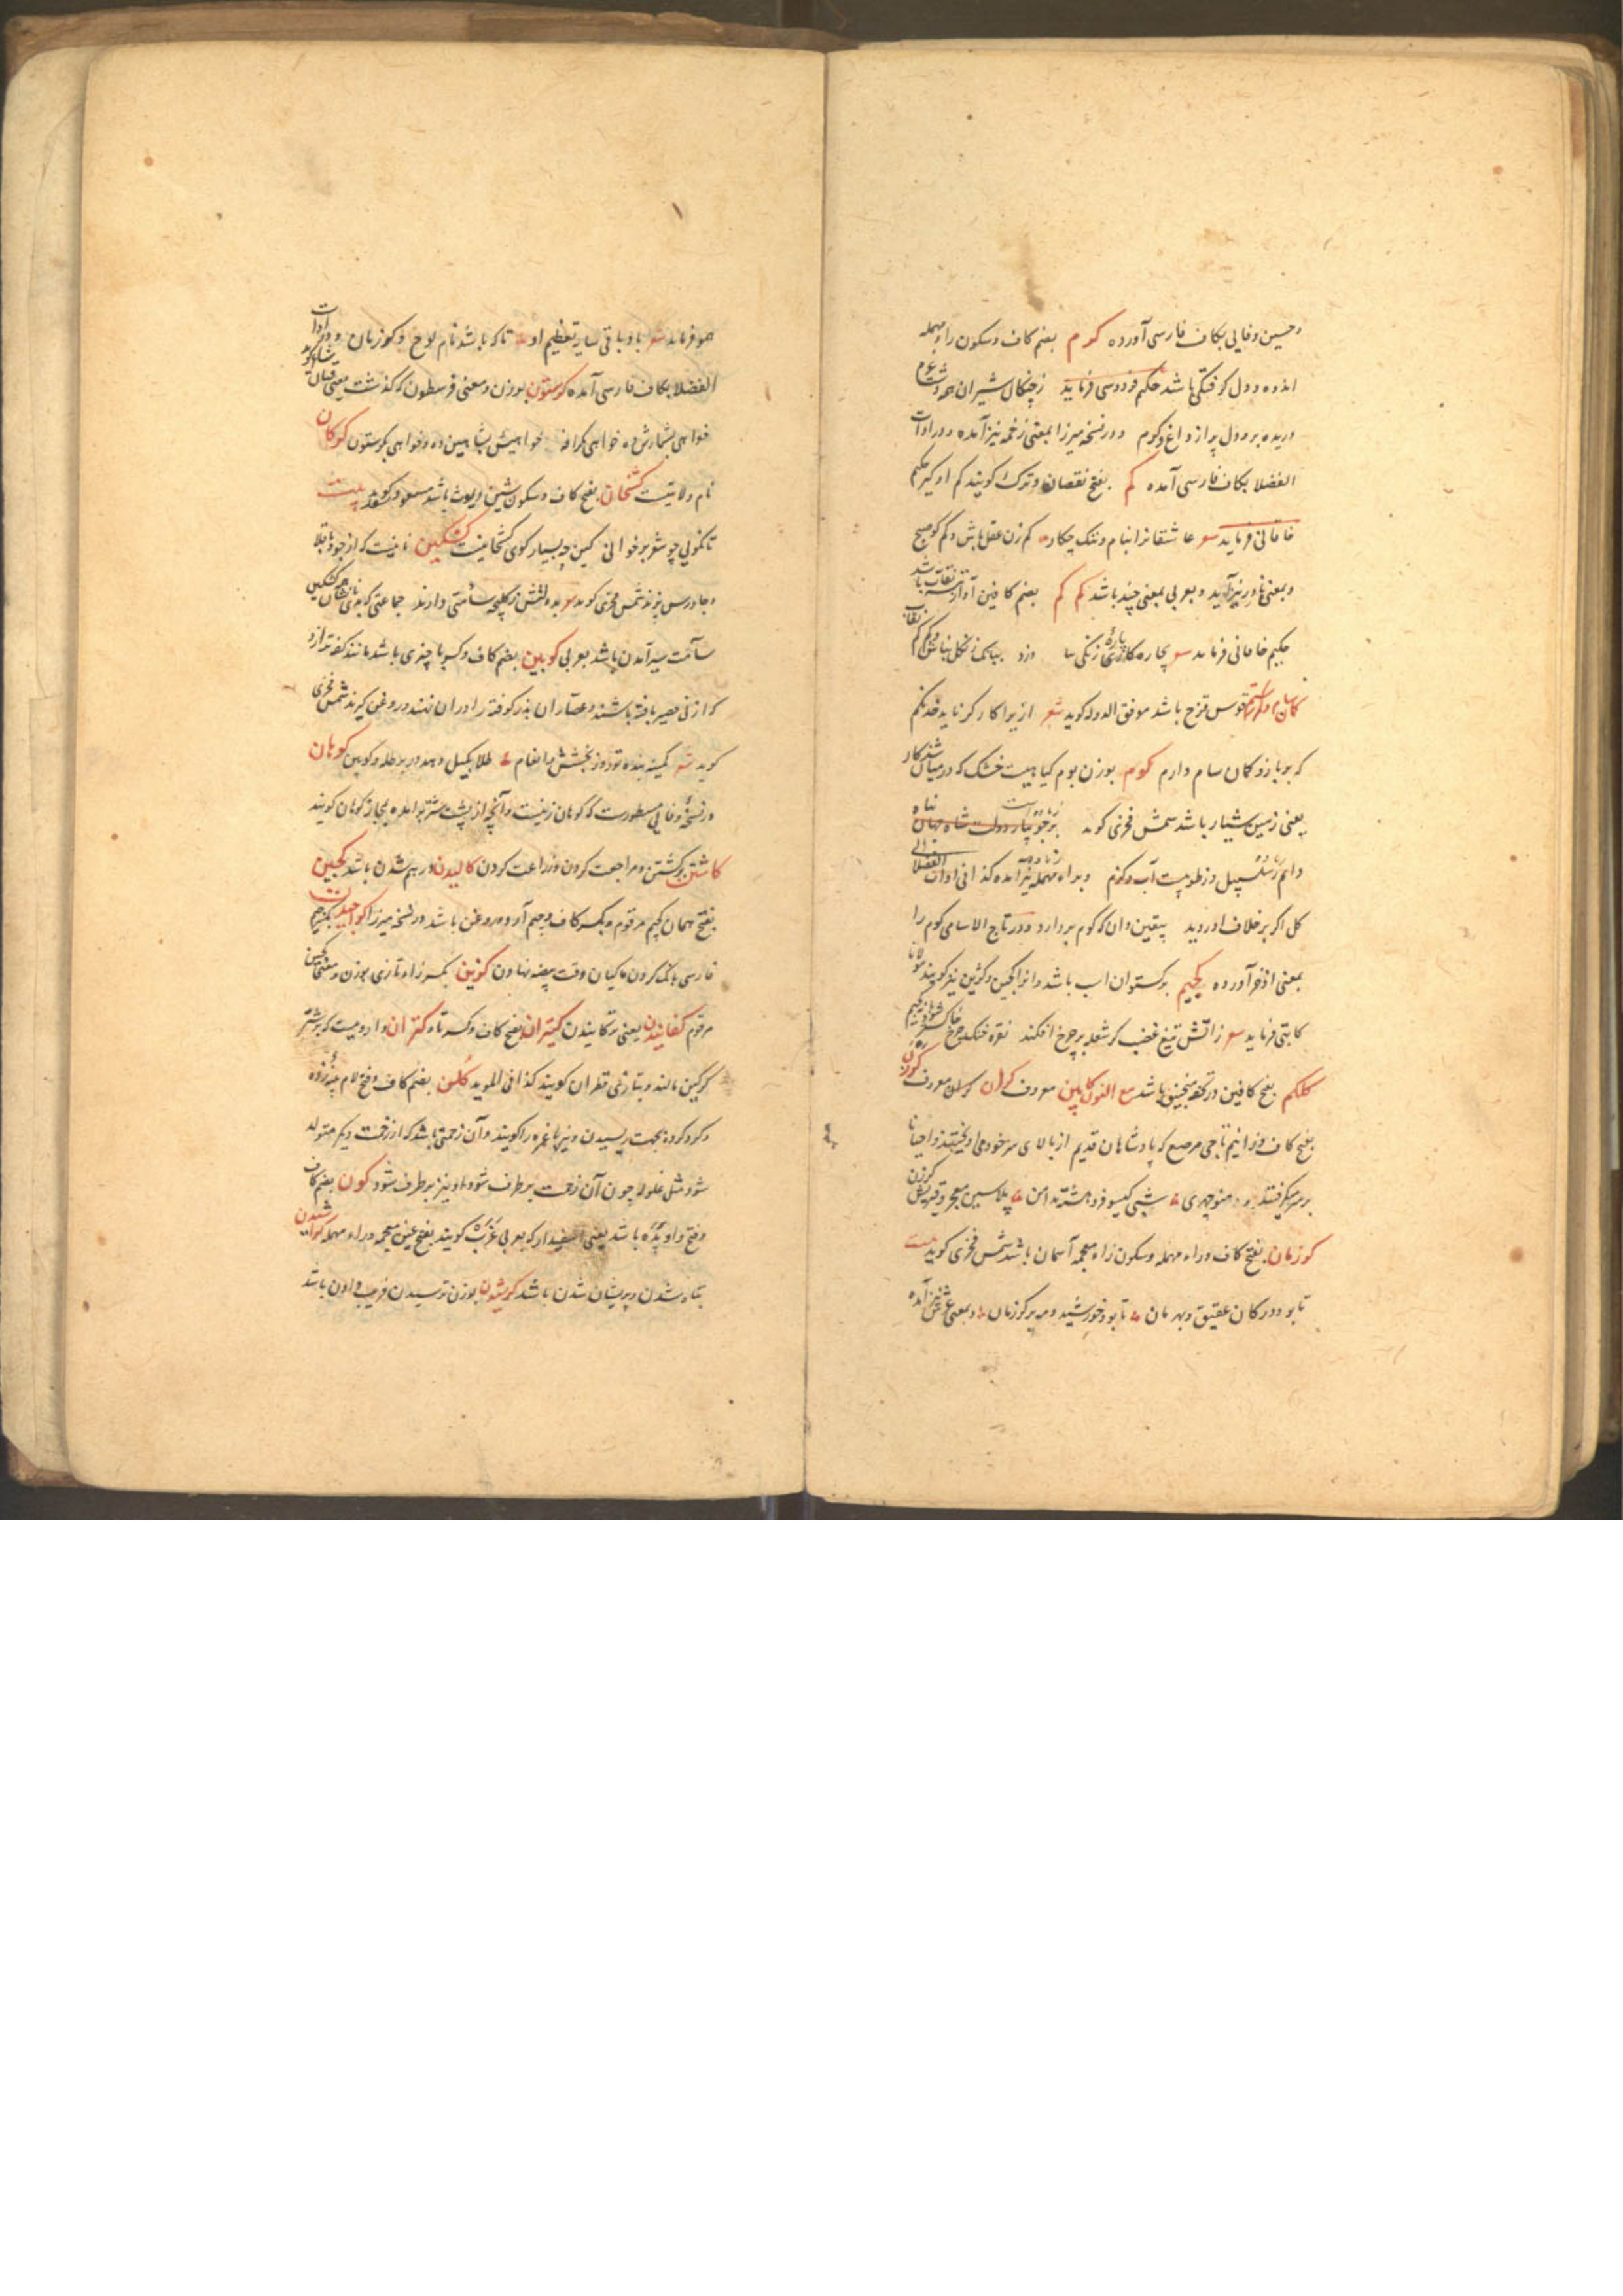 و حسین وفایی بکاف فارسی آورده کرم بضم کاف و سکون راء مهمله
اندوه و دل گرفتگی باشد حکیم فردوسی فرماید ز چنگال شیران همه دشت غرم
دریده برو دل پر از داغ و کرم و در نسخه میرزا بمعنی زخمه نیز آمده و در ادات
الفضلا بکاف فارسی آمده کم بفتح نقصان و ترک گویند کم او گیر حکیم
خاقانی فرماید شعر عاشقانرا بنام و ننک چکار کم زن عقل باش و کم کو صبح
و بمعنی نادر نیز آید و بعربی بمعنی چند باشد کم کم بضم کافین آواز
حکیم خاقانی فرماید شعر پاره
قوس قزح باشد موفق الدوله کوید شعر از بوا کار کر ناید خدنکم
که بر بازو کمان سام دارم کوم بوزن بوم کیاهیست خشک که در میان شد کار
یعنی زمین شیار باشد شمس فخری کوید
دایم و براء مهمله نیز آمده کذا فی ادات الفضلا
کل اکر بر خلاف او روید بیقین دان که کوم بر دارد و در تاج الاسامی کوم را
بمعنی اذخر آورده کجیم برکستوان اسب باشد و آنرا کجین و کژین نیز کویند مولانا
کاتبی فرماید شعر ز آتش تیغ غضب کر شعله بر چرخ افکند نقره خنک چرخ
کلکم بفتح کافین در تحفه منجنیق باشد مع النون کابین معروف کران کران معروف کرزن
بفتح کاف و زا نیم تاجی مرصع که پادشاهان قدیم از بالای سر خود می آویختند و احیانا
بر سر میکرفتند منوچهری شبی کیسو فرو هشته بدامن پلاسین معجر و قیرینه کرزن
کورزمان بفتح کاف و راء مهمله و سکون زاء معجمه آسمان باشد شمس فخری کوید بیت
تا بود در کان عقیق و بهرمان تا بود خورشید و مه بر کرزمان و بمعنی عرش نیز آمده
همو فرماید شعر باد باقی تعظیم او تا که باشد نام لوح و کرزمان و در ادات
الفضلا بکاف فارسی آمده کرستون بوزن و معنی فرسطون که کذشت یعنی قپان
خواهی بشمارش ده خواهی کزافه خواهیش بشاهین ده و خواهی بکرستون کرکان
نام ولایتیست کشخان بفتح کاف و سکون شین دیوث باشد مسعود سعد کوید بیت
تا نکوئی چو شعر برخوانی کین چه بسیار کوی کشخانیست کشکین نانیست که از جو و باقلا
و جاورس پزند شمس فخری کوید شعر
سآمت سیر آمدن باشد بعربی کوبین بضم کاف و کسر با چیزی باشد مانند کفه ترازو
که از نی حصیر بافته باشند و عصاران بذر کوفته را در آن نهند و روغن کیرند شمس فخری
کوید شعر کمینه بنده تو روز بخشش و انعام طلا بکیل دهد در برطله و کوبین کوهان
در نسخه وفایی مسطورست که کوهان زینست و آنچه از پشت شتر برآمده مجاز کوهان کویند
کاشتن برکشتن و مراجعت کردن و زراعت کردن کالیدن در هم شدن باشد کجین
بفتح همان کجیم مرقوم و بکسر کاف و جیم آرد و روغن باشد در نسخه میرزا کراجیدن بکسر جیم
فارسی بانک کردن ماکیان وقت بیضه نهادن کزین بکسر زاء تازی بوزن و معنی کجین
مرقوم کفانیدن یعنی ترکانیدن کتیران بفتح کاف و کسر تاء کتران داروییست که بر شتر
کرکین مالند و بتازی قطران کویند کذا فی الموید کلن بضم کاف و فتح لام پنبه زده
و کرد کرده بجهت ریسیدن و نیز باغره را کویند و آن زحمتی باشد که از زحمت دیکر متولد
شود مثل غلوله چون آن زحمت برطرف شود او نیز برطرف شود کون بضم کاف
و فتح واو پده باشد یعنی سفیدار که بعربی غرب کویند بفتح غین معجمه و راء مهمله کراشیدن
تباه شدن و پریشان شدن باشد کریشیدن بوزن ترسیدن فریب دادن باشد